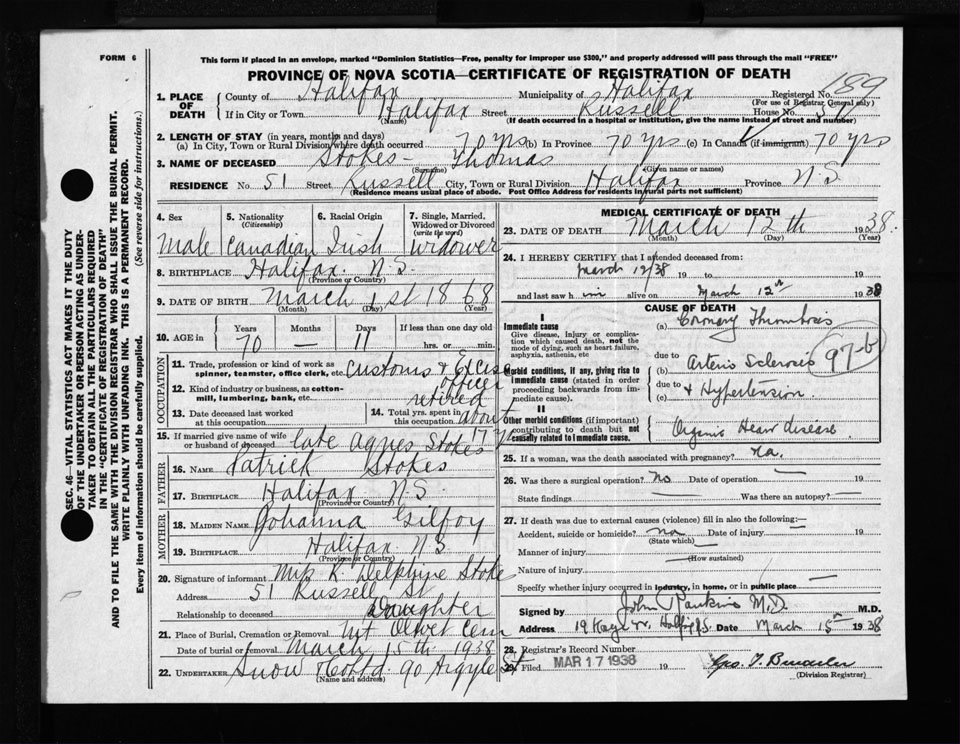 FORM 6
This form if placed in an envelope, marked "Dominion Statistics—Free, penalty for improper use $300," and properly addressed will pass through the mail "FREE"
PROVINCE OF NOVA SCOTIA—CERTIFICATE OF REGISTRATION OF DEATH
SEC. 46—VITAL STATISTICS ACT MAKES IT THE DUTY
OF THE UNDERTAKER OR PERSON ACTING AS UNDER-
TAKER TO OBTAIN ALL THE PARTICULARS REQUIRED
IN THE "CERTIFICATE OF REGISTRATION OF DEATH"
AND TO FILE THE SAME WITH THE DIVISION REGISTRAR WHO SHALL ISSUE THE BURIAL PERMIT.
WRITE PLAINLY WITH UNFADING INK. THIS IS A PERMANENT RECORD.
Every item of information should be carefully supplied. (See reverse side for instructions.)
1. PLACE OF DEATH County of Halifax Municipality of Halifax Registered No. 189
(For use of Registrar General only)
If in City or Town Halifax Street Russell House No. 51
(Name) (If death occurred in a hospital or institution, give the name instead of street and number)
2. LENGTH OF STAY (in years, months and days)
(a) In City, Town or Rural Division where death occurred 70 yrs (b) In Province 70 yrs (c) In Canada (if immigrant) 70 yrs
3. NAME OF DECEASED Stokes - Thomas
(Surname) (Given name or names)
RESIDENCE No. 51 Street Russell City, Town or Rural Division Halifax Province N S
(Residence means usual place of abode. Post Office Address for residents in rural parts not sufficient)
4. Sex 5. Nationality (Citizenship) 6. Racial Origin 7. Single, Married, Widowed or Divorced (write the word)
Male Canadian Irish Widower
8. BIRTHPLACE Halifax N.S.
(Province or Country)
9. DATE OF BIRTH March 1st 1868
(Month) (Day) (Year)
10. AGE in Years Months Days If less than one day old
70 — 11 hrs. or min.
OCCUPATION
11. Trade, profession or kind of work as spinner, teamster, office clerk, etc. Customs & Excise officer
12. Kind of industry or business, as cotton-mill, lumbering, bank, etc. retired
13. Date deceased last worked at this occupation
14. Total yrs. spent in this occupation about 17 y
15. If married give name of wife or husband of deceased late Agnes Stokes
FATHER
16. NAME Patrick Stokes
17. BIRTHPLACE Halifax N.S.
(Province or Country)
MOTHER
18. MAIDEN NAME Johanna Gilfoy
19. BIRTHPLACE Halifax N.S.
(Province or Country)
20. Signature of informant Miss K Delphine Stoke
Address 51 Russell St
Relationship to deceased Daughter
21. Place of Burial, Cremation or Removal Mt Olivet Cem
Date of burial or removal March 15th 1938
22. UNDERTAKER Snow & Co Ltd 90 Argyle St
(Name and address)
MEDICAL CERTIFICATE OF DEATH
23. DATE OF DEATH March 12th 1938.
(Month) (Day) (Year)
24. I HEREBY CERTIFY that I attended deceased from:
March 12/38 19 to 19
and last saw h im alive on March 12th 1938
CAUSE OF DEATH
I
Immediate cause
Give disease, injury or complication which caused death, not the mode of dying, such as heart failure, asphyxia, asthenia, etc
(a) Coronary Thrombosis
due to
Morbid conditions, if any, giving rise to immediate cause (stated in order proceeding backwards from immediate cause).
(b) Arterio Sclerosis 97-b
due to
(c) & Hypertension
II
Other morbid conditions (if important) contributing to death but not causally related to immediate cause.
Organic Heart disease
25. If a woman, was the death associated with pregnancy? na.
26. Was there a surgical operation? No Date of operation — 19
State findings — Was there an autopsy? —
27. If death was due to external causes (violence) fill in also the following:—
Accident, suicide or homicide? no Date of injury — 19
(State which)
Manner of injury —
(How sustained)
Nature of injury —
Specify whether injury occurred in industry, in home, or in public place —
Signed by John Rankine M.D. M.D.
Address Halifax Date March 15th 1938
28. Registrar's Record Number
29. Filed MAR 17 1938
(Division Registrar)